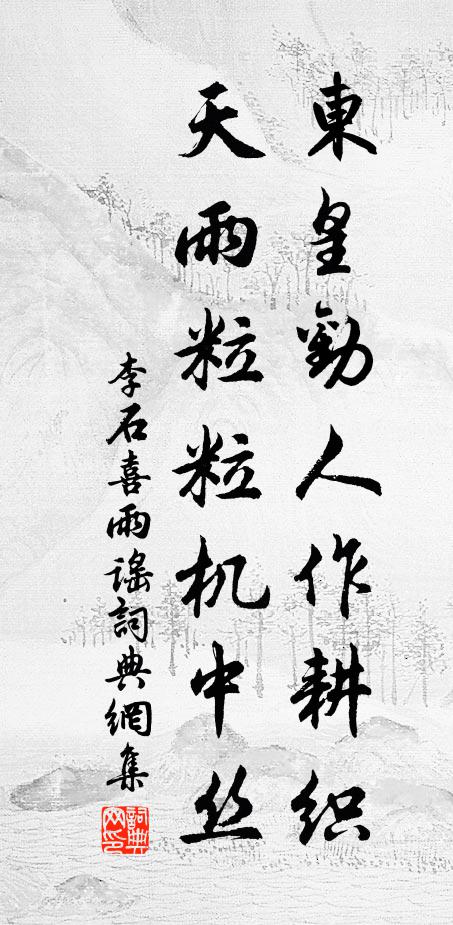 東皇勸人作耕织
天雨粒粒机中丝
李石喜雨谣詞典網集
詞典網印